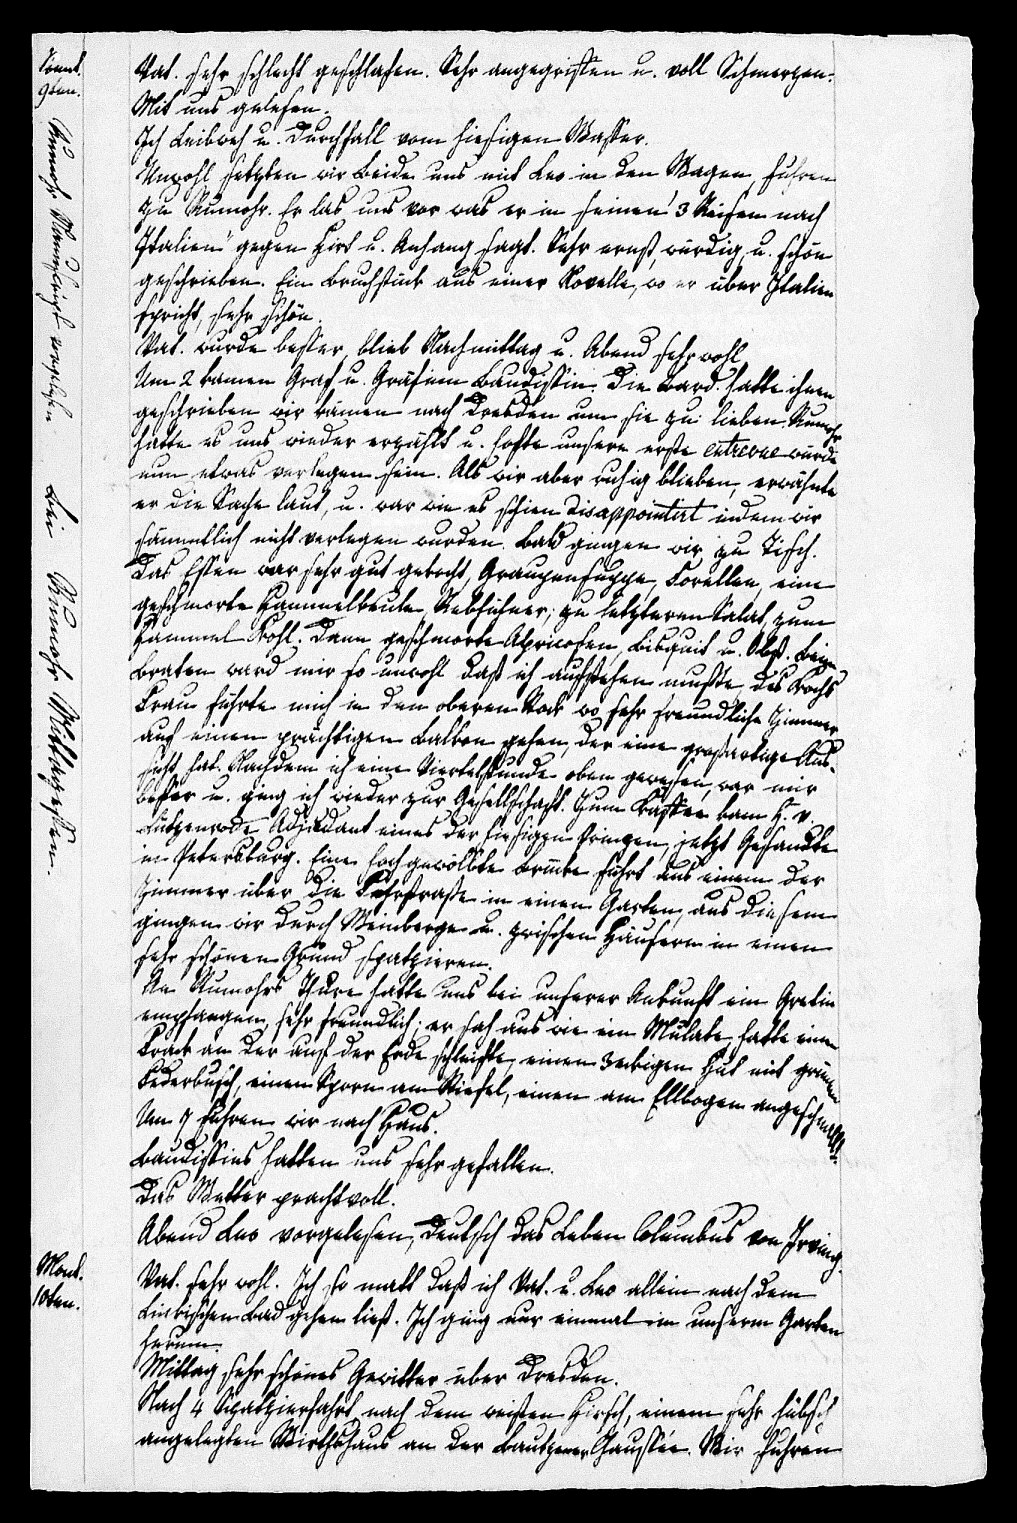 Sonnt.
9ten.
Rumohr. Baudissin's
bei Rumohr Mittagessen.
Nat. sehr schlecht geschlafen. Sehr angegriffen u. voll Schmerzen.
Mit uns gelesen.
Ich Leibweh u. Durchfall vom hiesigen Wasser.
Unwohl setzten wir beide uns mit Leo in den Wagen, fuhren
zu Rumohr. Er las uns vor was er in seinen "3 Reisen nach
Italien" gegen Hirt u. Anhang sagt. Sehr ernst, würdig u. schön
geschrieben. Ein Bruchstück aus einer Novelle, wo er über Italien
spricht, sehr schön.
Nat. wurde besser, blieb Nachmittag u. Abend sehr wohl
Um 2 kamen Graf u. Gräfinn Baudissin. Die Bard. hatte ihnen
geschrieben wir kämen nach Dresden um sie zu lieben. Rumohr
hatte es uns wieder erzählt u. hoffte unsere erste entrevue würde
nun etwas verlegen sein. Als wir aber ruhig blieben, erwähnte
er die Sache laut, u. war wie es schien disappointirt indem wir
sämmtlich nicht verlegen wurden. Bald gingen wir zu Tisch.
Das Essen war sehr gut gekocht, Graupensuppe, Forellen, eine
geschmorte Hammelkeule, Rebhühner, zu letzteren Salat, zum
Hammel Kohl. Dann geschmorte Apricosen, Bisquit u. Obst. Beim
Braten ward mir so unwohl daß ich aufstehen mußte, des Kochs
Frau führte mich in den oberen Stock wo sehr freundliche Zimmer
auf einen prächtigen Balkon gehen, der eine großartige Aus-
sicht hat. Nachdem ich eine Viertelstunde oben gewesen, war mir
besser u. ging ich wieder zur Gesellschaft. Zum Kaffee kam H. v.
Lützerode Adjudant eines der hiesigen Prinzen, jetzt Gesandte
in Petersburg. Eine hochgewölbte Brücke führt aus einem der
Zimmer über die Fahrstraße in einen Garten, aus diesem
gingen wir durch Weinberge u. zwischen Häusern in einen
sehr schönen Grund spatzieren.
An Rumohrs Thüre hatte uns bei unserer Ankunft ein Cretin
empfangen, sehr freundlich; er sah aus wie ein Mulate, hatte einen
Frack an der auf der Erde schleifte, einen 3eckigen Hut mit grünem
Federbusch, einen Sporn am Stiefel, einen am Ellbogen angeschnallt.
Um 7 fuhren wir nach Haus.
Baudissins hatten uns sehr gefallen.
Das Wetter prachtvoll.
Abend Leo vorgelesen, Deutsch das Leben Columbus von Irving.
Mont.
10ten.
Nat. sehr wohl. Ich so matt daß ich Nat. u. Leo allein nach dem
Linkischen Bad gehen ließ. Ich ging nur einmal in unserm Garten
herum.
Mittag sehr schönes Gewitter über Dresden.
Nach 4 Spatzierfahrt nach dem weißen Hirsch, einem sehr hübsch
angelegten Wirthshaus an der Bautzener Chaussée. Wir fuhren